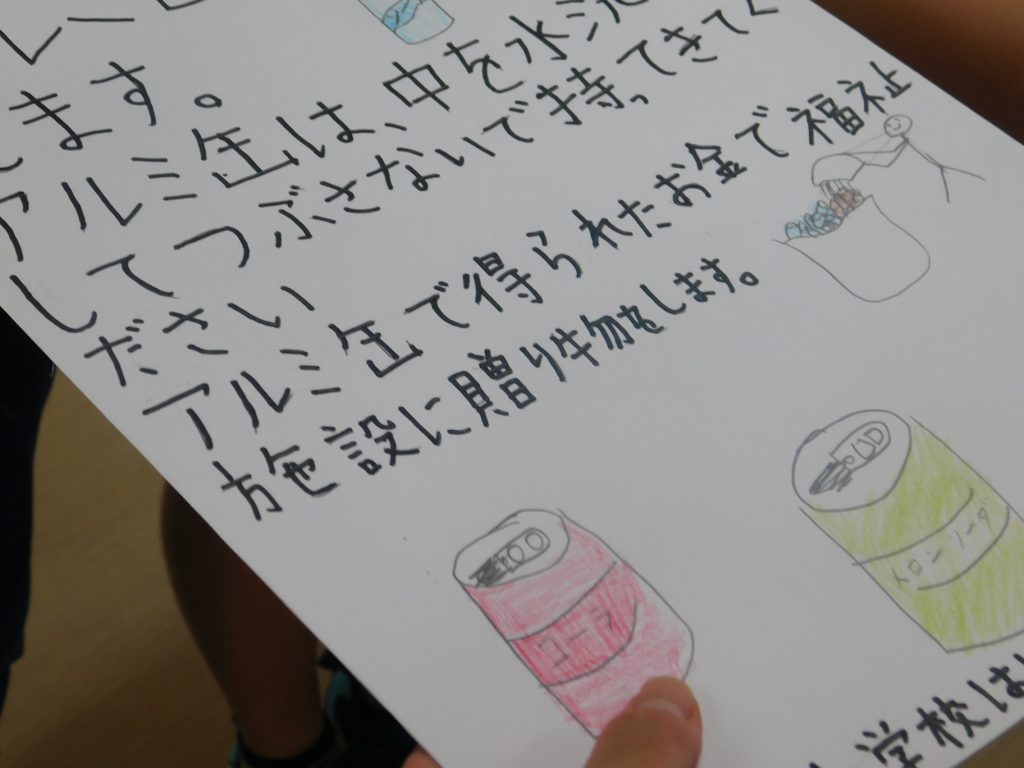 します。
アルミ缶は、中を水洗
してつぶさないで持ってきてく
ださい
アルミ缶で得られたお金で福祉
施設に贈り物をします。
コーラ
メロンソーダ
学校は